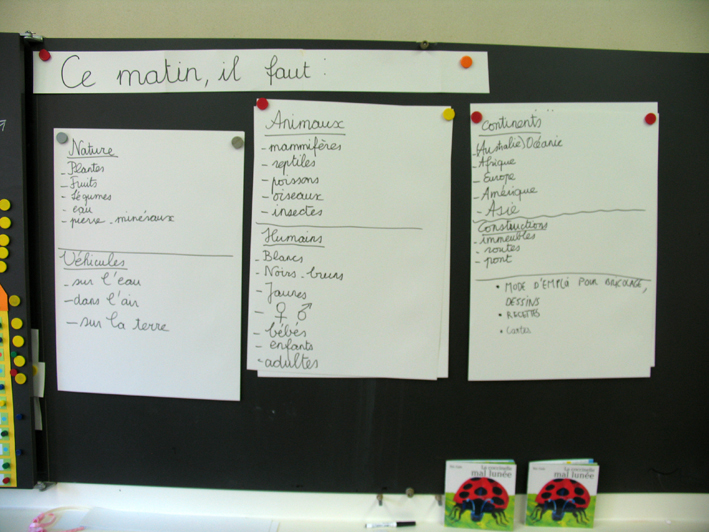 Ce matin, il faut :
Nature
- Plantes
- Fruits
- Légumes
- eau
- pierre - minéraux
Véhicules
- sur l'eau
- dans l'air
- sur la terre
Animaux
- mammifères
- reptiles
- poissons
- oiseaux
- insectes
Humains
- Blancs
- Noirs - bruns
- Jaunes
- ♀ ♂
- bébés
- enfants
- adultes
Continents
- (Australie) Océanie
- Afrique
- Europe
- Amérique
- Asie
Constructions
- immeubles
- routes
- pont
• MODE D'EMPLOI POUR BRICOLAGE,
DESSINS
• RECETTES
• Cartes
La coccinelle
mal lunée
La coccinelle
mal lunée